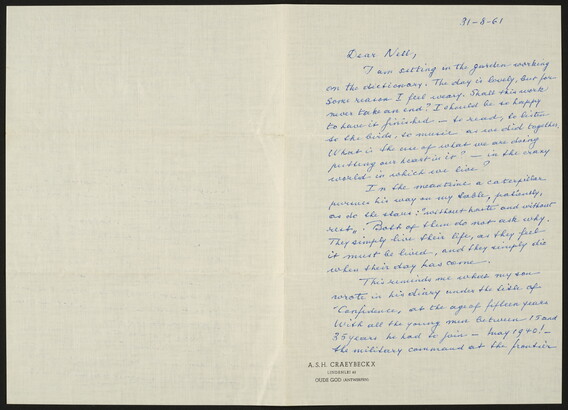 31-8-61
Dear Nell,
I am sitting in the garden working
on the dictionary. The day is lovely, but for
some reason I feel weary. Shall this work
never take an end? I should be so happy
to have it finished — to read, to listen
to the birds, to music as we did together.
What is the use of what we are doing
putting our heart in it? — in the crazy
world in which we live?
In the meantime a caterpillar
pursues his way on my table, patiently,
as do the stars: "without haste and without
rest". Both of them do not ask why.
They simply live their life, as they feel
it must be lived, and they simply die
when their day has come.
This reminds me what my son
wrote in his diary under the title of
"Confidence, at the age of fifteen years
With all the young men between 15 and
35 years he had to join — May 1940! —
the military command at the frontier
A.S.H. CRAEYBECKX
OUDE GOD (ANTWERPEN)